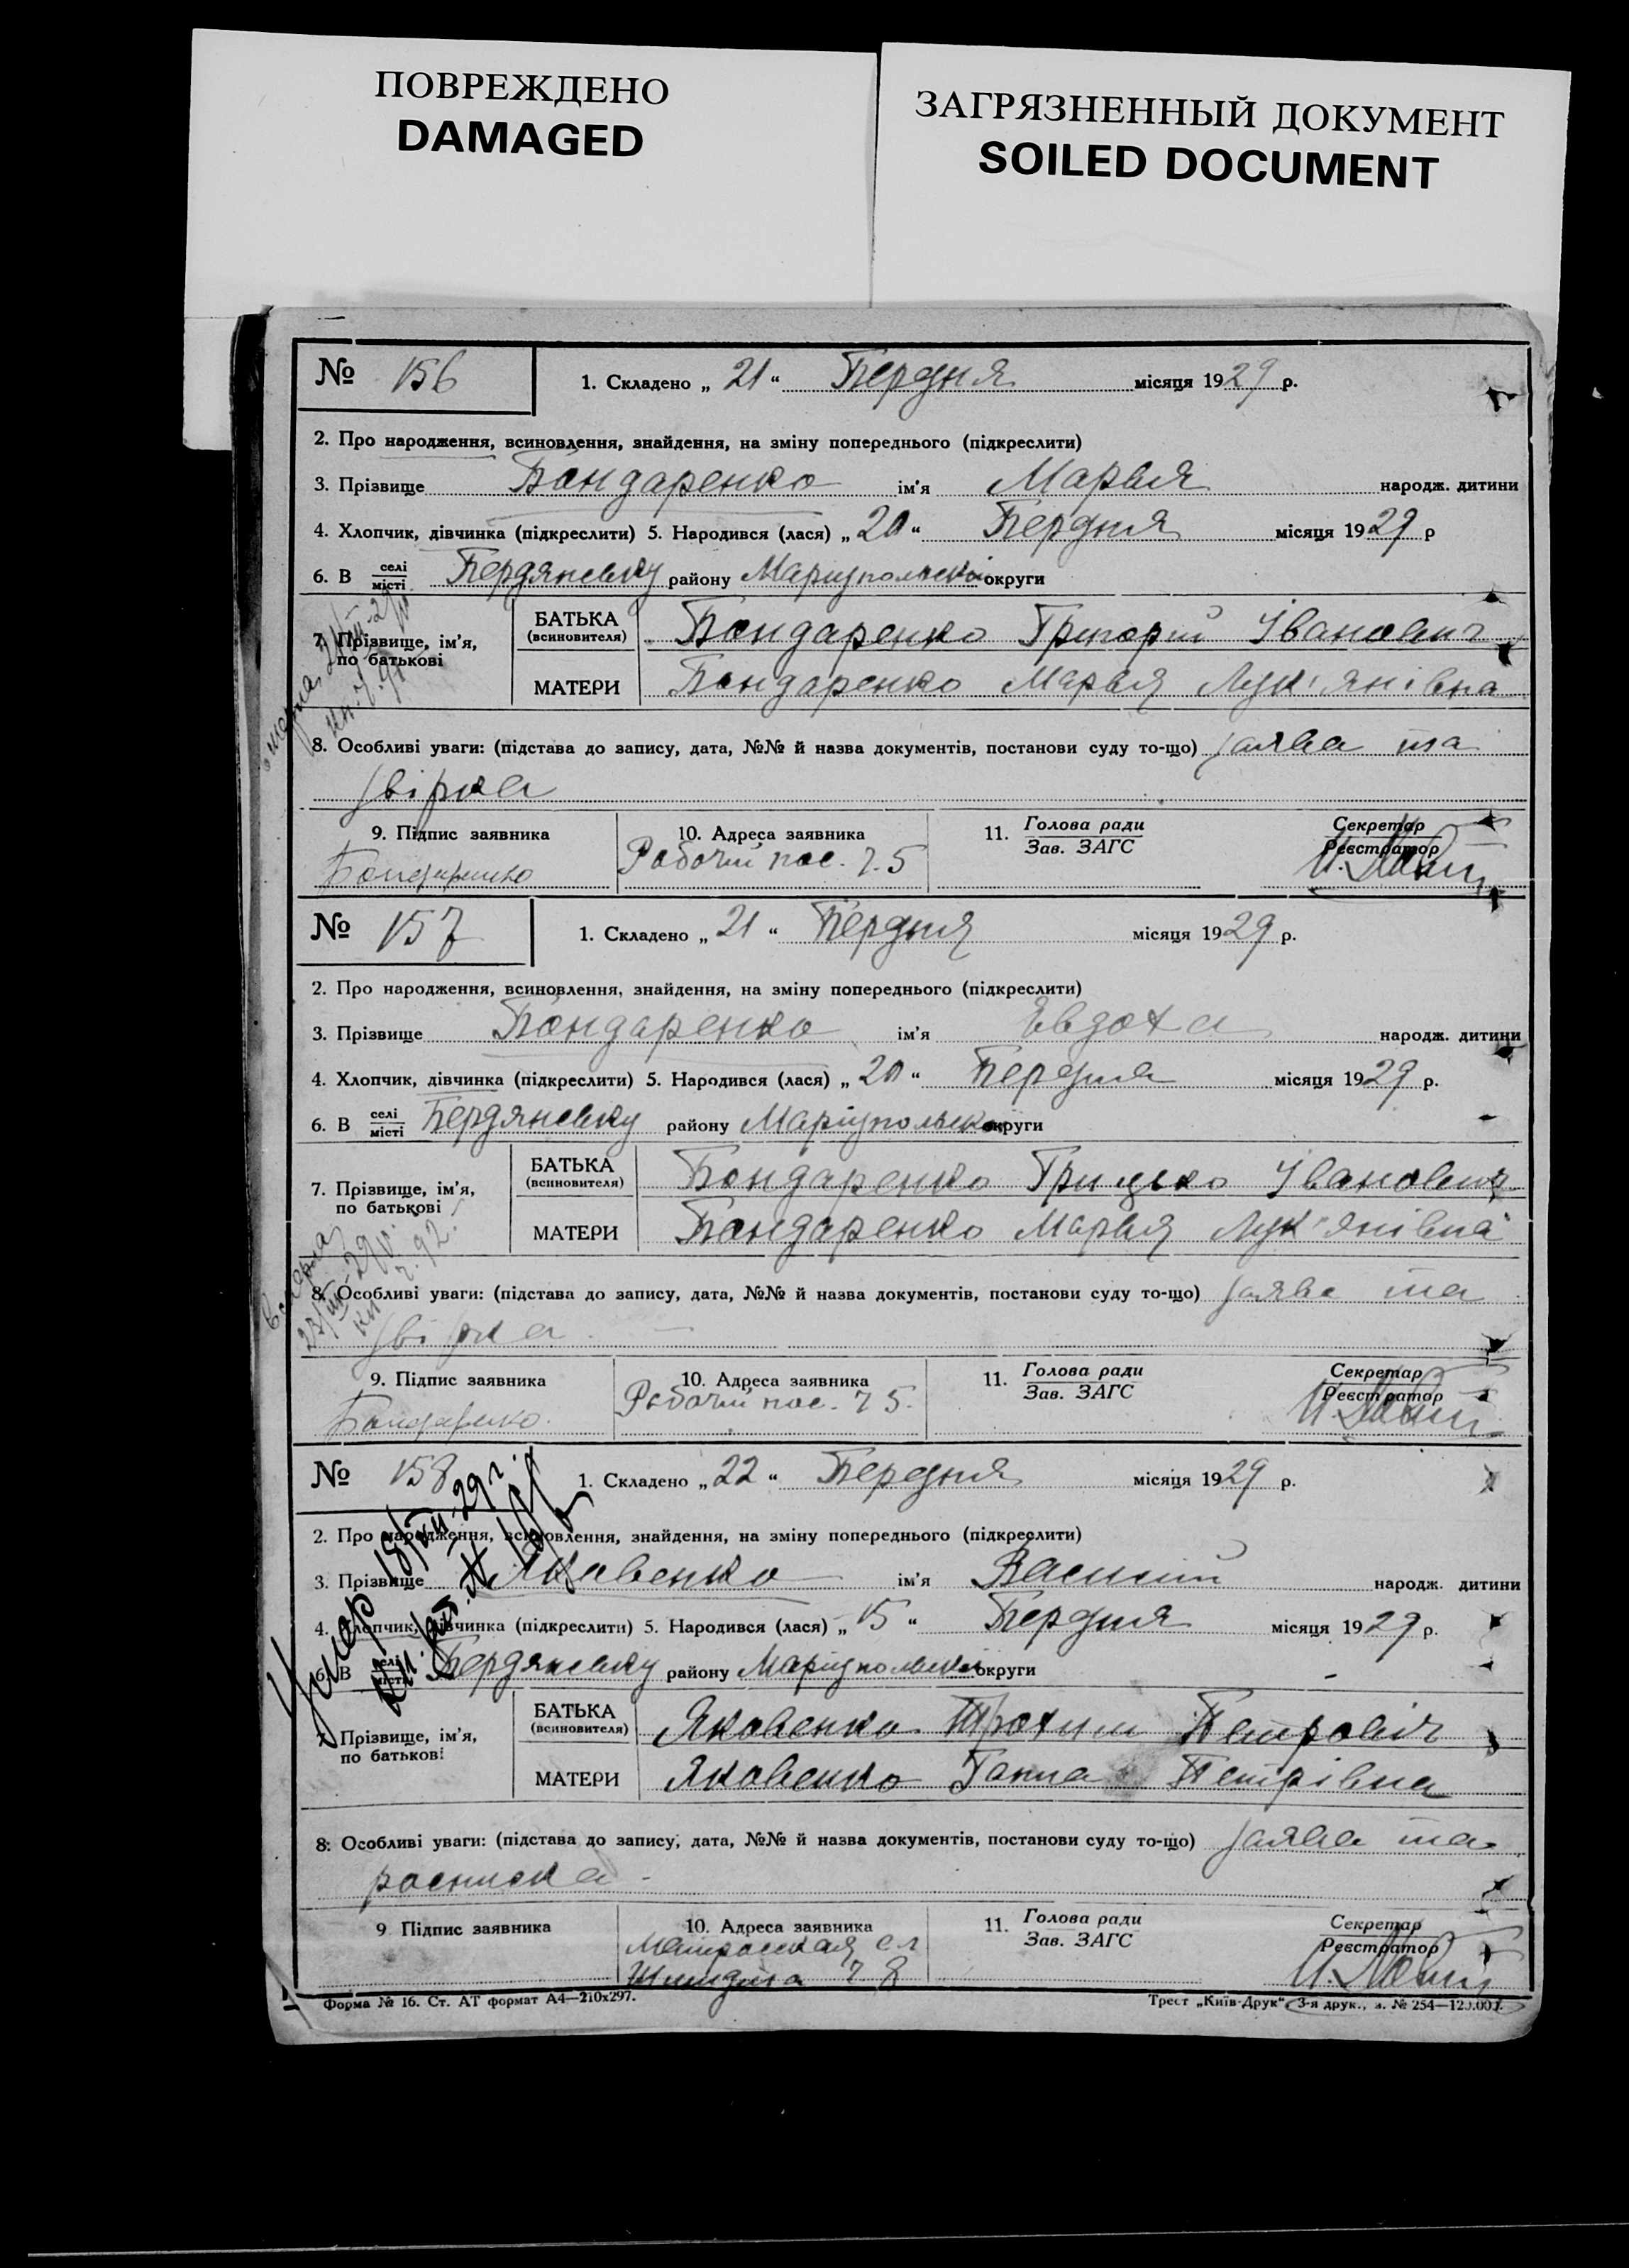 ПОВРЕЖДЕНО
DAMAGED
ЗАГРЯЗНЕННЫЙ ДОКУМЕНТ
SOILED DOCUMENT
№ 156
1. Складено „ 21 “ Бердня місяця 1929 р.
2. Про народження, всиновлення, знайдення, на зміну попереднього (підкреслити)
3. Прізвище Бондаренко ім'я Марья народж. дитини
4. Хлопчик, дівчинка (підкреслити) 5. Народився (лася) „ 20 “ Бердня місяця 1929 р
6. В селі місті Бердянську району Маріупольської округи
7. Прізвище, ім'я, по батькові
БАТЬКА (всиновителя) Бондаренко Григорий Іванович
МАТЕРИ Бондаренко Марья Лук'янівна
8. Особливі уваги: (підстава до запису, дата, №№ й назва документів, постанови суду то-що) заява та
звірка
9. Підпис заявника
Бондаренко
10. Адреса заявника
Рабочий пос. 7.5
11. Голова ради
Зав. ЗАГС
Секретар
Реєстратор
№ 157
1. Складено „ 21 “ Бердня місяця 1929 р.
2. Про народження, всиновлення, знайдення, на зміну попереднього (підкреслити)
3. Прізвище Бондаренко ім'я Евдоха народж. дитини
4. Хлопчик, дівчинка (підкреслити) 5. Народився (лася) „ 20 “ Бердня місяця 1929 р.
6. В селі місті Бердянську району Маріупольськ округи
7. Прізвище, ім'я, по батькові
БАТЬКА (всиновителя) Бондаренко Грицько Іванович
МАТЕРИ Бондаренко Марья Лук"янівна
8. Особливі уваги: (підстава до запису, дата, №№ й назва документів, постанови суду то-що) заява та
звірка
9. Підпис заявника
Бондаренко.
10. Адреса заявника
Рабочий пос. 75.
11. Голова ради
Зав. ЗАГС
Секретар
Реєстратор
№ 158
1. Складено „ 22 “ Бердня місяця 1929 р.
2. Про народження, всиновлення, знайдення, на зміну попереднього (підкреслити)
3. Прізвище Яковенко ім'я Василий народж. дитини
4. Хлопчик, дівчинка (підкреслити) 5. Народився (лася) „ 15 “ Бердня місяця 1929 р.
6. В селі місті Бердянську району Маріупольської округи
Умер 18/XII-29 г.
7. Прізвище, ім'я, по батькові
БАТЬКА (всиновителя) Яковенко Трохим Петровіч
МАТЕРИ Яковенко Ганна Петрівна
8. Особливі уваги: (підстава до запису, дата, №№ й назва документів, постанови суду то-що) заява та
росписка
9 Підпис заявника
10. Адреса заявника
Матросская сл
Шмидта 7 8
11. Голова ради
Зав. ЗАГС
Секретар
Реєстратор
Форма № 16. Ст. АТ формат А4—210x297.
Трест „Київ-Друк“, 3-я друк., з. № 254—120.000.